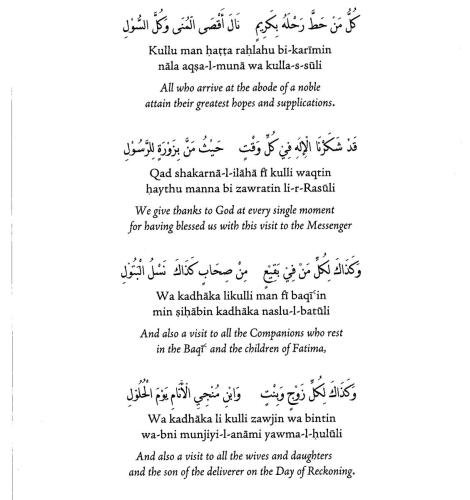 كُلُّ مَنْ حَطَّ رَحْلَهُ بِكَرِيْمٍ نَالَ أَقْصَى الْمُنَى وَكُلَّ السُّوْلِ
Kullu man ḥaṭṭa raḥlahu bi-karīmin
nāla aqṣa-l-munā wa kulla-s-sūli
All who arrive at the abode of a noble
attain their greatest hopes and supplications.
قَدْ شَكَرْنَا الْإِلٰهَ فِيْ كُلِّ وَقْتٍ حَيْثُ مَنَّ بِزَوْرَةٍ لِلرَّسُوْلِ
Qad shakarnā-l-ilāhā fī kulli waqtin
ḥaythu manna bi zawratin li-r-Rasūli
We give thanks to God at every single moment
for having blessed us with this visit to the Messenger
وَكَذَاكَ لِكُلِّ مَنْ فِيْ بَقِيْعٍ مِنْ صِحَابٍ كَذَاكَ نَسْلُ الْبَتُوْلِ
Wa kadhāka likulli man fī baqīʿin
min ṣiḥābin kadhāka naslu-l-batūli
And also a visit to all the Companions who rest
in the Baqīʿ and the children of Fatima,
وَكَذَاكَ لِكُلِّ زَوْجٍ وَبِنْتٍ وَابْنِ مُنْجِي الْأَنَامِ يَوْمَ الْحُلُوْلِ
Wa kadhāka li kulli zawjin wa bintin
wa-bni munjiyi-l-anāmi yawma-l-ḥulūli
And also a visit to all the wives and daughters
and the son of the deliverer on the Day of Reckoning.